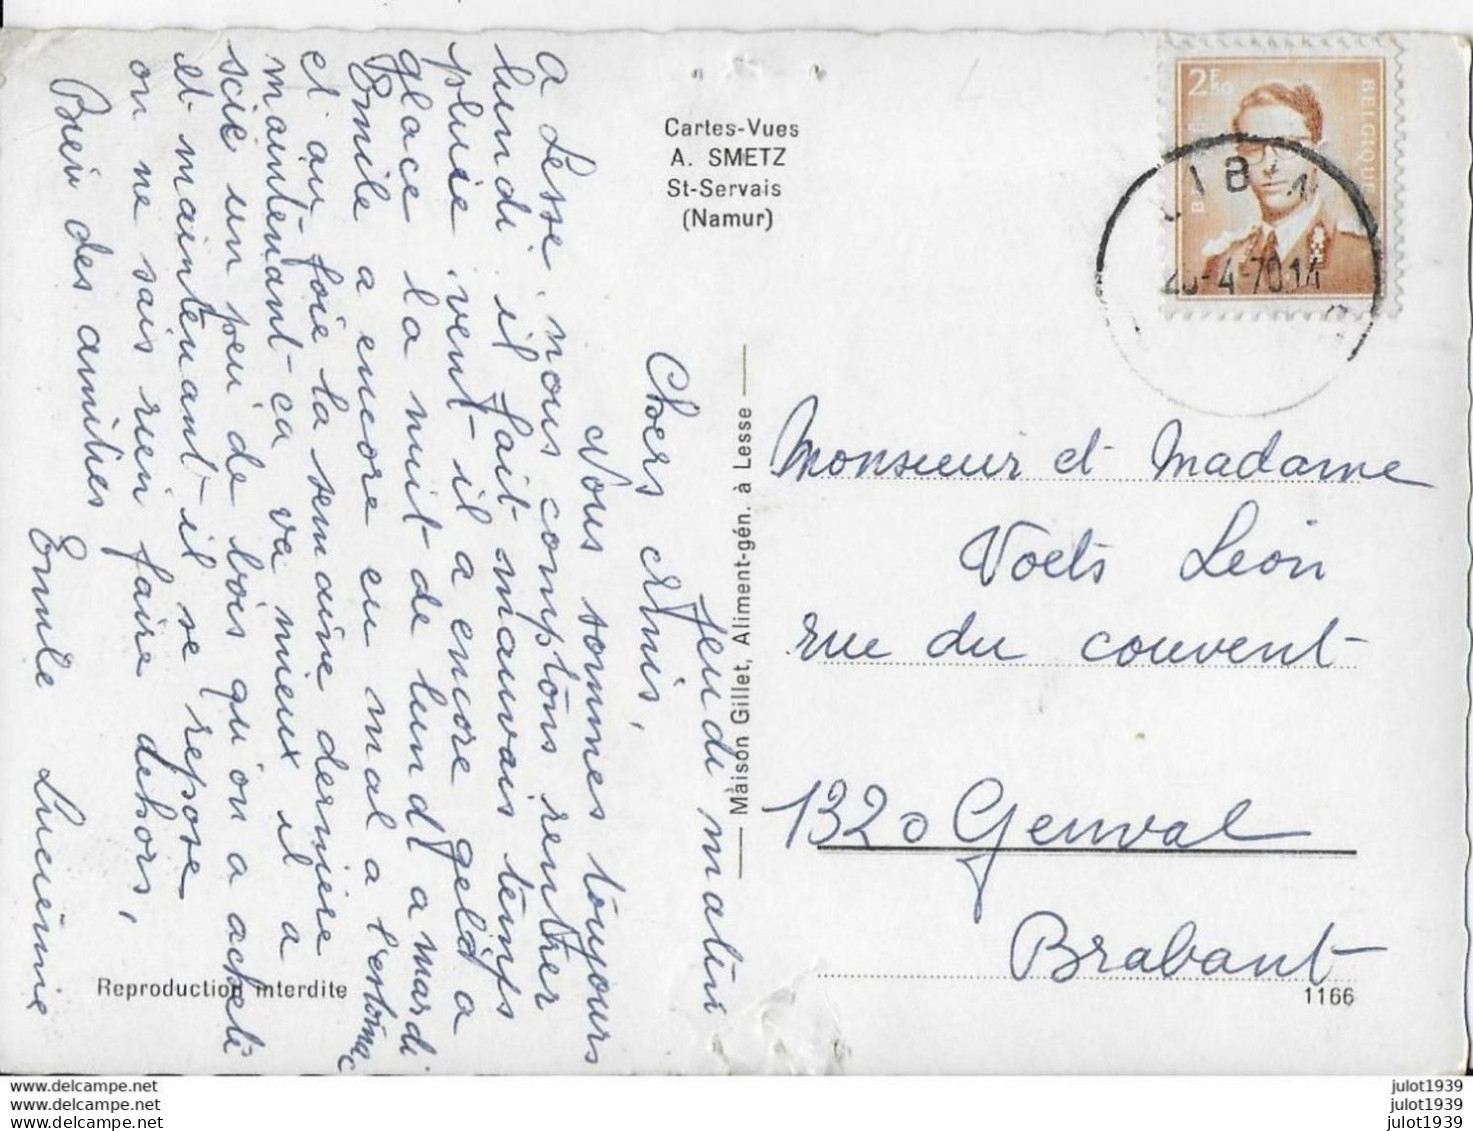 Jeudi matin
Chers Amis,
Nous sommes toujours
a Lesse, nous comptons rentrer
lundi il fait mauvais temps
pluie vent il a encore gelé a
glace la nuit de lundi a mardi
Emile a encore eu mal a l'estomac
et au foie la semaine derniere
maintenant ca va mieux il a
scié un peu de bois qu'on a acheté
et maintenant il se repose
on ne sais rien faire dehors,
Bien des amitiés
Emile Lucienne
Cartes-Vues
A. SMETZ
St-Servais
(Namur)
Maison Gillet, Aliment-gén. à Lesse
Reproduction interdite
2F50
BELGIQUE
LIBIN
-4-70 14
Monsieur et Madame
Voets Leon
rue du couvent
1320 Genval
Brabant
1166
www.delcampe.net
www.delcampe.net
www.delcampe.net
julot1939
julot1939
julot1939